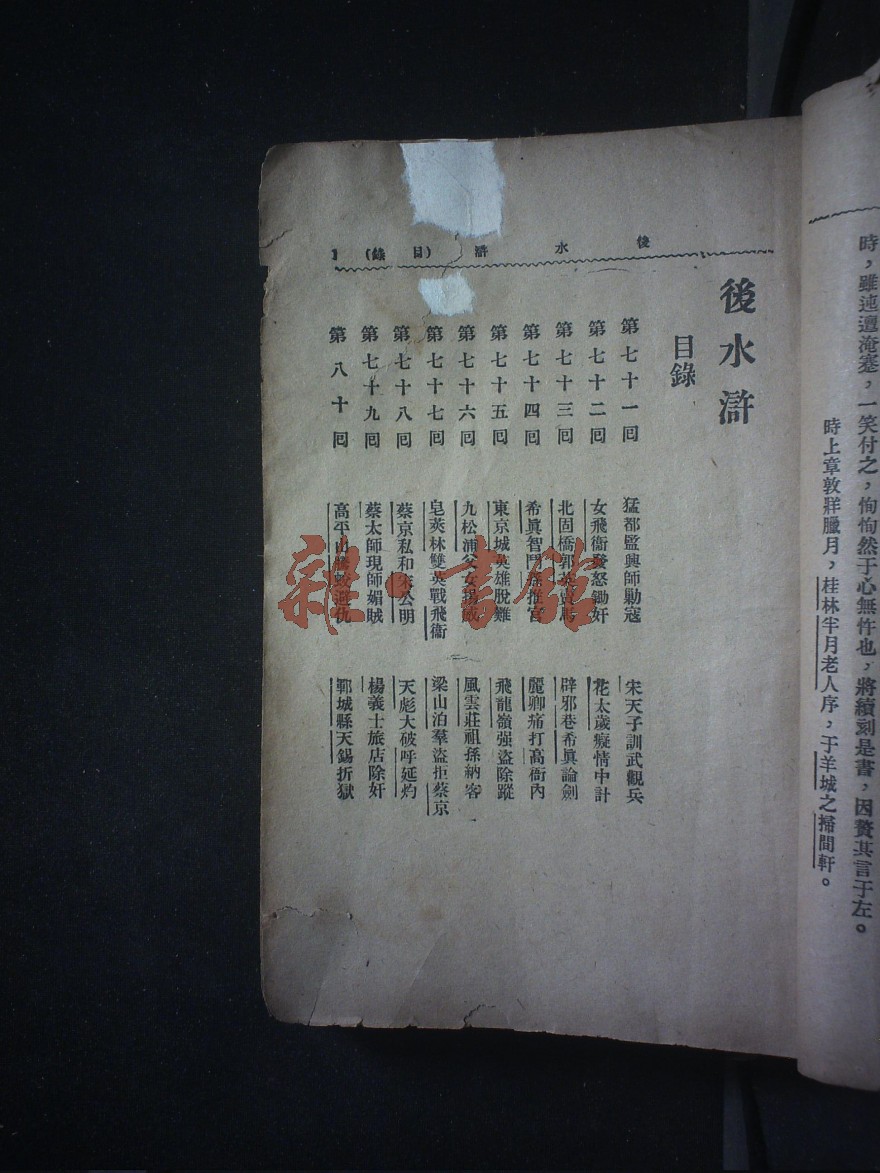 時，雖迍邅淹蹇，一笑付之，恂恂然于心無怍也，將續刻是書，因贅其言于左。
時上章敦牂臘月，桂林半月老人序，于羊城之掃閒軒。
後水滸（目錄） 1
後水滸
目錄
第七十一回 猛都監興師勦寇 宋天子訓武觀兵
第七十二回 女飛衞發怒鋤奸 花太歲癡情中計
第七十三回 北固橋郭英賣馬 辟邪巷希眞論劍
第七十四回 希眞智鬥孫推官 麗卿痛打高衙內
第七十五回 東京城英雄脫難 飛龍嶺强盜除蹤
第七十六回 九松浦父女揚威 風雲莊祖孫納客
第七十七回 皂莢林雙英戰飛衞 梁山泊羣盜拒蔡京
第七十八回 蔡京私和宋公明 天彪大破呼延灼
第七十九回 蔡太師現師媚賊 楊義士旅店除奸
第八十回 高平山 避仇 鄆城縣天錫折獄
雜·書館